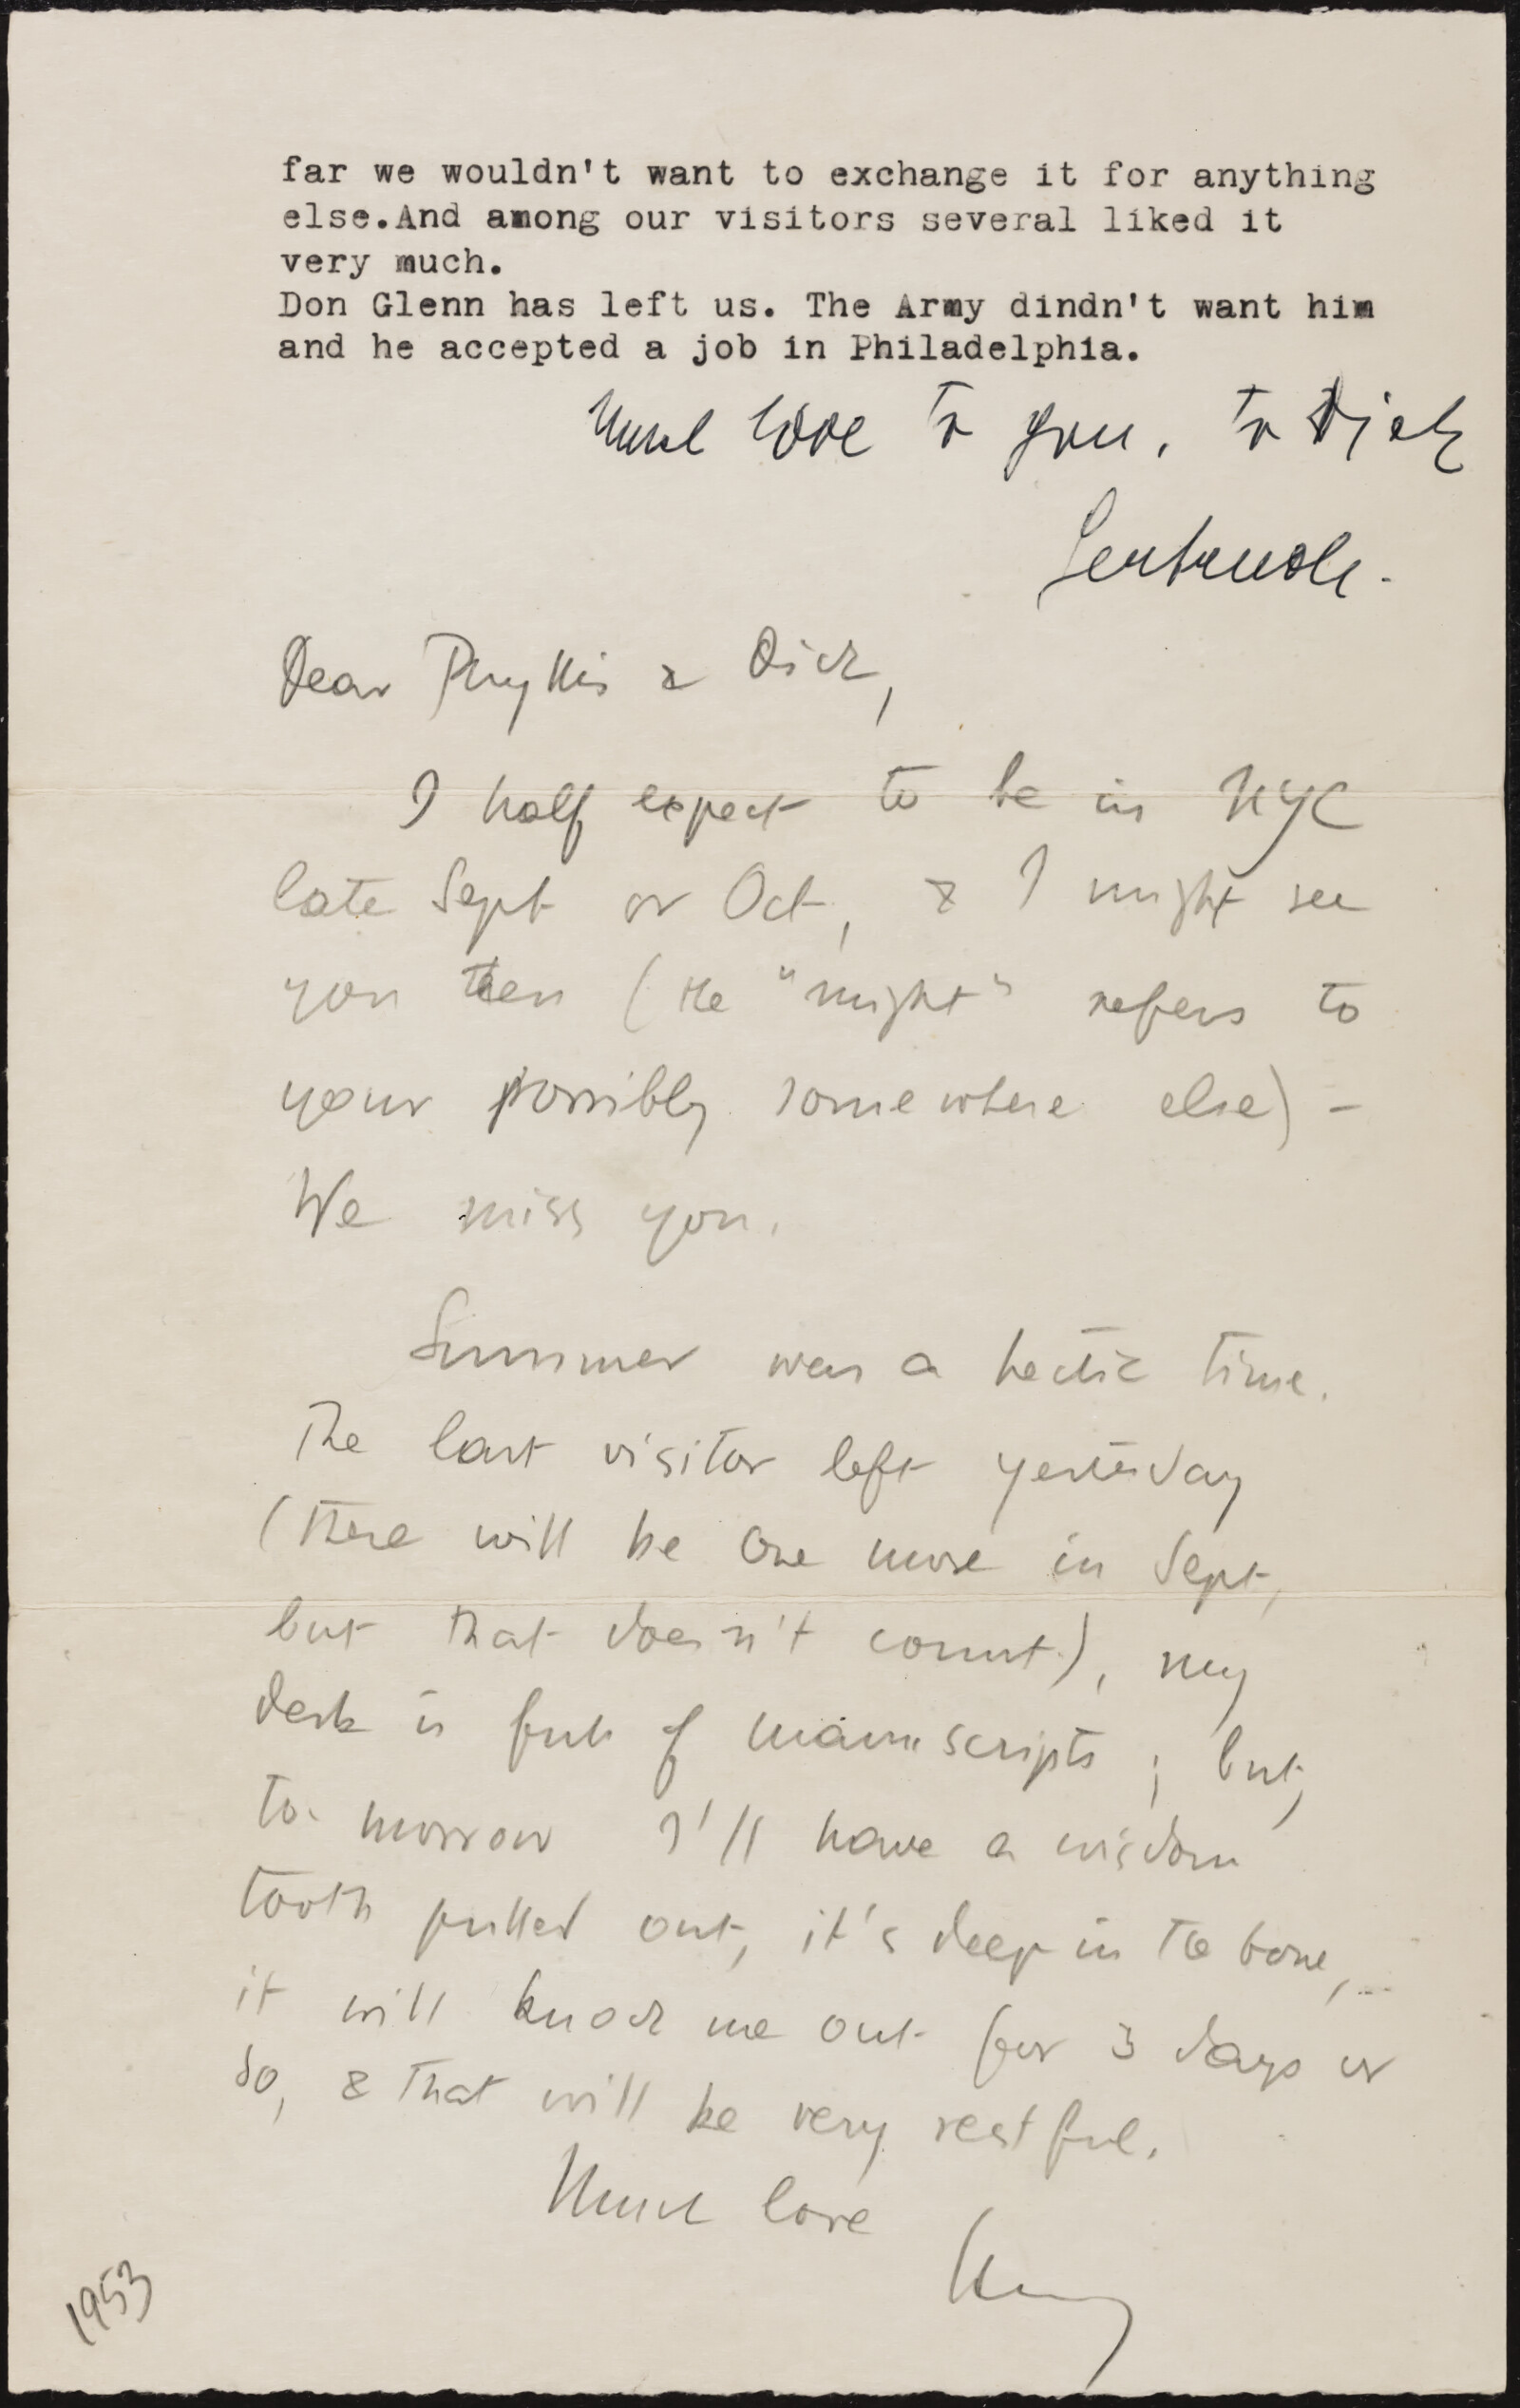 far we wouldn't want to exchange it for anything
else.And among our visitors several liked it
very much.
Don Glenn has left us. The Army dindn't want him
and he accepted a job in Philadelphia.
Much love to you, to Dick
Gertrude.
Dear Phyllis & Dick,
I half expect to be in NYC
late Sept or Oct, & I might see
you then (the "might" refers to
your possibly somewhere else) –
We miss you.
Summer was a hectic time.
The last visitor left yesterday
(there will be one more in Sept,
but that doesn't count), my
desk is full of manuscripts ; but,
to-morrow I'll have a wisdom
tooth pulled out, it's deep in the bone,
it will knock me out for 3 days or
so, & that will be very restful.
Much love
1953